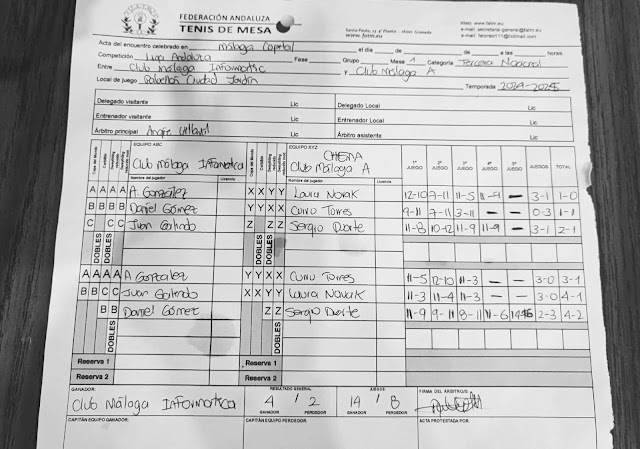 FEDERACIÓN ANDALUZA
TENIS DE MESA
Santa Paula, 23 4ª Planta - 18001 Granada
www.fatm.eu
Web: www.fatm.eu
e-mail: secretaria-general@fatm.eu
Acta del encuentro celebrado en Málaga Capital el día de de a las horas
Competición Liga Andaluza Fase Grupo Mesa 1 Categoría Tercera Nacional
Entre Club Málaga Informatic y Club Málaga A
Local de juego Pabellón Ciudad Jardín Temporada 2024-2025
Delegado visitante Lic Delegado Local Lic
Entrenador visitante Lic Entrenador Local Lic
Árbitro principal Lic Árbitro asistente Lic
EQUIPO ABC Club Málaga Informatica EQUIPO XYZ CHEMA Club Málaga A 1º JUEGO 2º JUEGO 3º JUEGO 4º JUEGO 5º JUEGO JUEGOS TOTAL
Nombre del jugador Licencia Nombre del jugador Licencia
A A A A A. González X X Y Y Laura Novak 12-10 7-11 11-5 11-9 - 3-1 1-0
B B B B Daniel Gómez Y Y X X Curro Torres 9-11 7-11 3-11 - - 0-3 1-1
C C C Juan Galindo Z Z Sergio Duarte 11-8 10-12 11-9 11-9 - 3-1 2-1
DOBLES DOBLES DOBLES DOBLES
A A A A A Gonzalez Y Y X X Curru Torres 11-5 12-10 11-3 - - 3-0 3-1
B B C C Juan Galindo X X Y Y Laura Novark 11-3 11-4 11-3 - - 3-0 4-1
B B Daniel Gómez Z Z Sergio Duarte 11-9 9-11 8-11 11-6 2-3 4-2
DOBLES DOBLES
Reserva 1 Reserva 1
Reserva 2 Reserva 2
GANADOR: RESULTADO GENERAL JUEGOS FIRMA DEL ÁRBITRO/S
Club Málaga Informatica 4 / 2 14 / 8
GANADOR PERDEDOR GANADOR PERDEDOR
CAPITÁN EQUIPO GANADOR: CAPITÁN EQUIPO PERDEDOR: ACTA PROTESTADA POR: